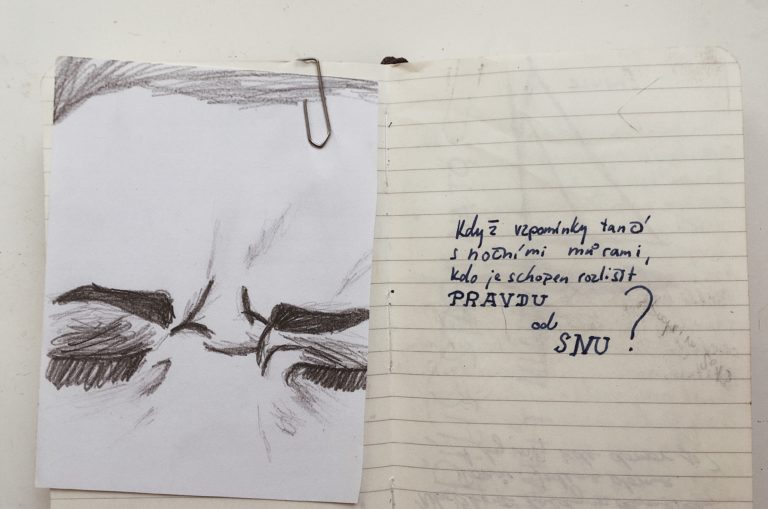 Když vzpomínky tančí
s nočními můrami,
kdo je schopen rozlišit
PRAVDU
od
SNU ?